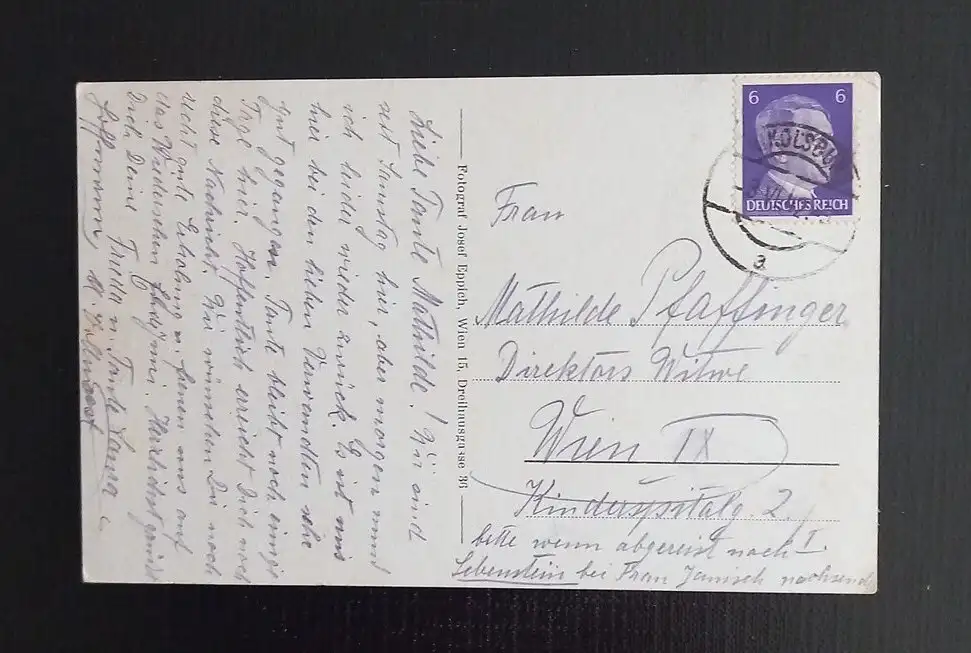 Liebe Tante Mathilde! Wir sind
seit Samstag hier, aber morgen muss
ich leider wieder zurück. Es ist uns
hier bei den lieben Verwandten sehr
gut gegangen. Tante bleibt noch einige
Tage hier. Hoffentlich erreicht Dich noch
diese Nachricht. Wir wünschen Dir noch
recht gute Erholung u. freuen uns auf
das Wiedersehen. Herzlichst grüsst
Dich Deine Truda u. Tante Lama
Hoffmann
Fotograf Josef Eppich, Wien 15, Dreihausgasse 36
6 6
KOLSBG
DEUTSCHES REICH
a
Frau
Mathilde Pfaffinger
Direktors Witwe
Wien IX
Kinderspitalg. 2.
bitte wenn abgereist nach
Lebenstein bei Frau Janisch nachsend